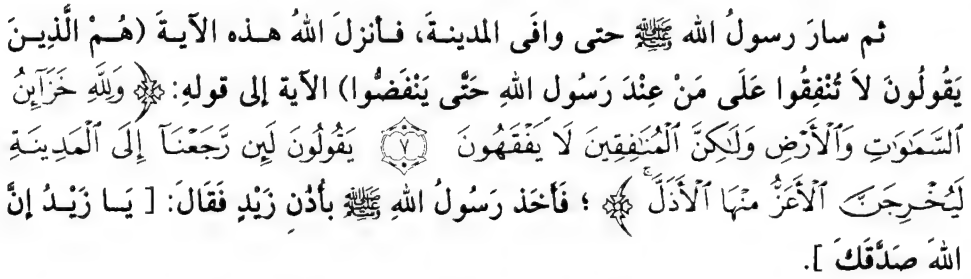 ثم سارَ رسولُ الله ﷺ حتى وافَى المدينةَ، فأنزلَ اللهُ هذه الآيةَ (هُمْ الَّذِينَ
يَقُولُونَ لاَ تُنْفِقُوا عَلَى مَنْ عِنْدَ رَسُولِ اللهِ حَتَّى يَنْفَضُّوا) الآية إلى قولهِ: ﴿ وَلِلَّهِ خَزَآئِنُ
ٱلسَّمَٰوَٰتِ وَٱلْأَرْضِ وَلَٰكِنَّ ٱلْمُنَٰفِقِينَ لَا يَفْقَهُونَ ٧ يَقُولُونَ لَئِن رَّجَعْنَآ إِلَى ٱلْمَدِينَةِ
لَيُخْرِجَنَّ ٱلْأَعَزُّ مِنْهَا ٱلْأَذَلَّ ۚ ﴾ ؛ فَأَخَذَ رَسُولُ اللهِ ﷺ بأُذُنِ زَيْدٍ فَقَالَ: [ يَا زَيْدُ إنَّ
اللهَ صَدَّقَكَ ].